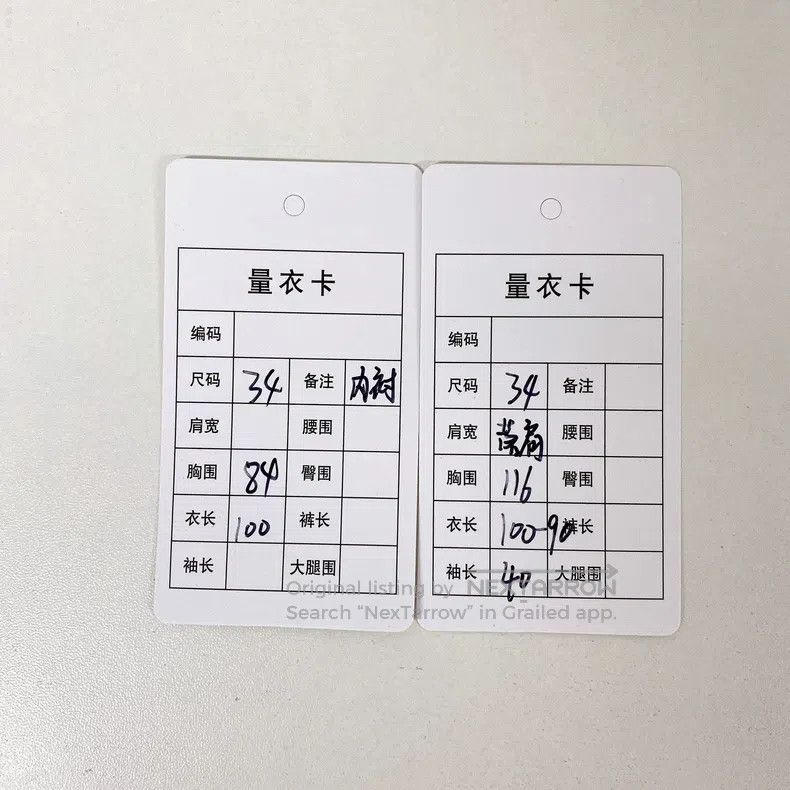 量衣卡
编码
尺码 34 备注 内衬
肩宽 腰围
胸围 84 臀围
衣长 100 裤长
袖长 大腿围
量衣卡
编码
尺码 34 备注
肩宽 肩 腰围
胸围 116 臀围
衣长 100-90 裤长
袖长 40 大腿围
Original listing by NEXTARROW
Search "NexTarrow" in Grailed app.